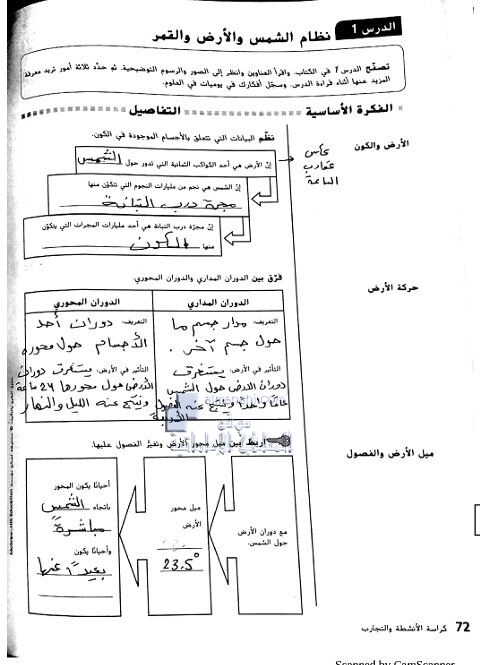 الدرس 1
نظام الشمس والأرض والقمر
تصفّح الدرس 1 في الكتاب، واقرأ العناوين وانظر إلى الصور والرسوم التوضيحية. ثم حدّد ثلاثة أمور تريد معرفة
المزيد عنها أثناء قراءة الدرس. وسجّل أفكارك في يوميات في العلوم.
الفكرة الأساسية
التفاصيل
الأرض والكون
عكس
عقارب
الساعة
نظّم البيانات التي تتعلق بالأجسام الموجودة في الكون.
إنّ الأرض هي أحد الكواكب الثمانية التي تدور حول الشمس
إنّ الشمس هي نجم من مليارات النجوم التي تتكوّن منها
مجرة درب التبانة
إنّ مجرّة درب التبانة هي أحد مليارات المجرات التي يتكوّن
منها الكون
حركة الأرض
فرّق بين الدوران المداري والدوران المحوري.
الدوران المداري
الدوران المحوري
التعريف: مدار جسم ما
حول جسم آخر.
التأثير في الأرض: يستغرق
دوران الأرض حول الشمس
عامًا واحدًا وينتج عنه الفصول
الأربعة
التعريف: دوران أحد
الأجسام حول محوره
التأثير في الأرض: يستغرق دوران
الأرض حول محورها 24 ساعة
وينتج عنه الليل والنهار
ميل الأرض والفصول
اربط بين ميل محور الأرض وتغيّر الفصول عليها.
مع دوران الأرض
حول الشمس.
ميل محور
الأرض
23.5°
أحيانًا يكون المحور
باتجاه الشمس
مباشرةً
وأحيانًا يكون
بعيدًا عنها
72 كراسة الأنشطة والتجارب
Scanned by CamScanner